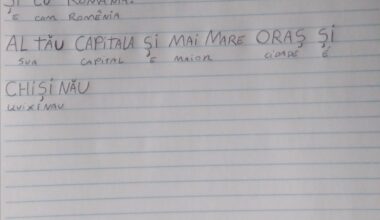 ŞI CU ROMÂNIA.
E COM ROMÊNIA
AL TĂU CAPITALA ŞI MAI MARE ORAŞ ŞI
SUA CAPITAL E MAIOR CIDADE É
CHIŞINĂU
QUIXINAU